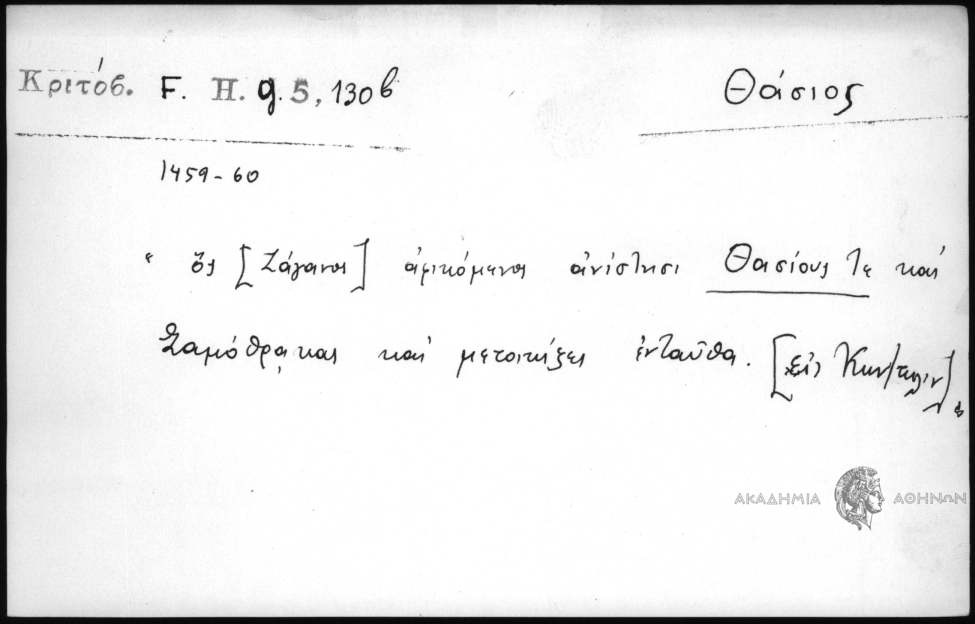 Κριτόβ. F. H. g. 5, 130b
Θάσιος
1459-60
" ὃς [Ζάγανος] ἀφικόμενος ἀνίστησι Θασίους τε καὶ
Σαμόθρᾳκας καὶ μετοικίζει ἐνταῦθα. [εἰς Κων/πολιν]"
ΑΚΑΔΗΜΙΑ ΑΘΗΝΩΝ